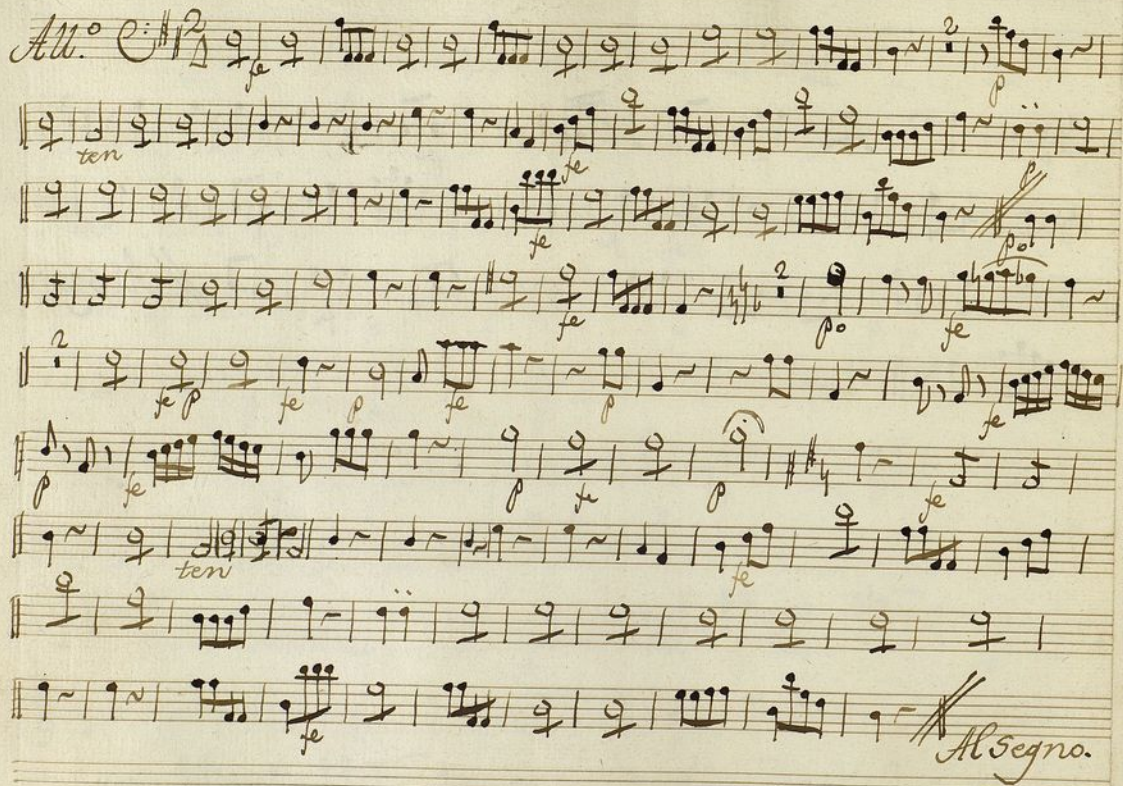 All.º 2 fe 2 p
ten fe p
fe po
fe 2 po fe
2 fe p fe p fe p fe
p fe p fe p fe
ten fe
fe
Al Segno.